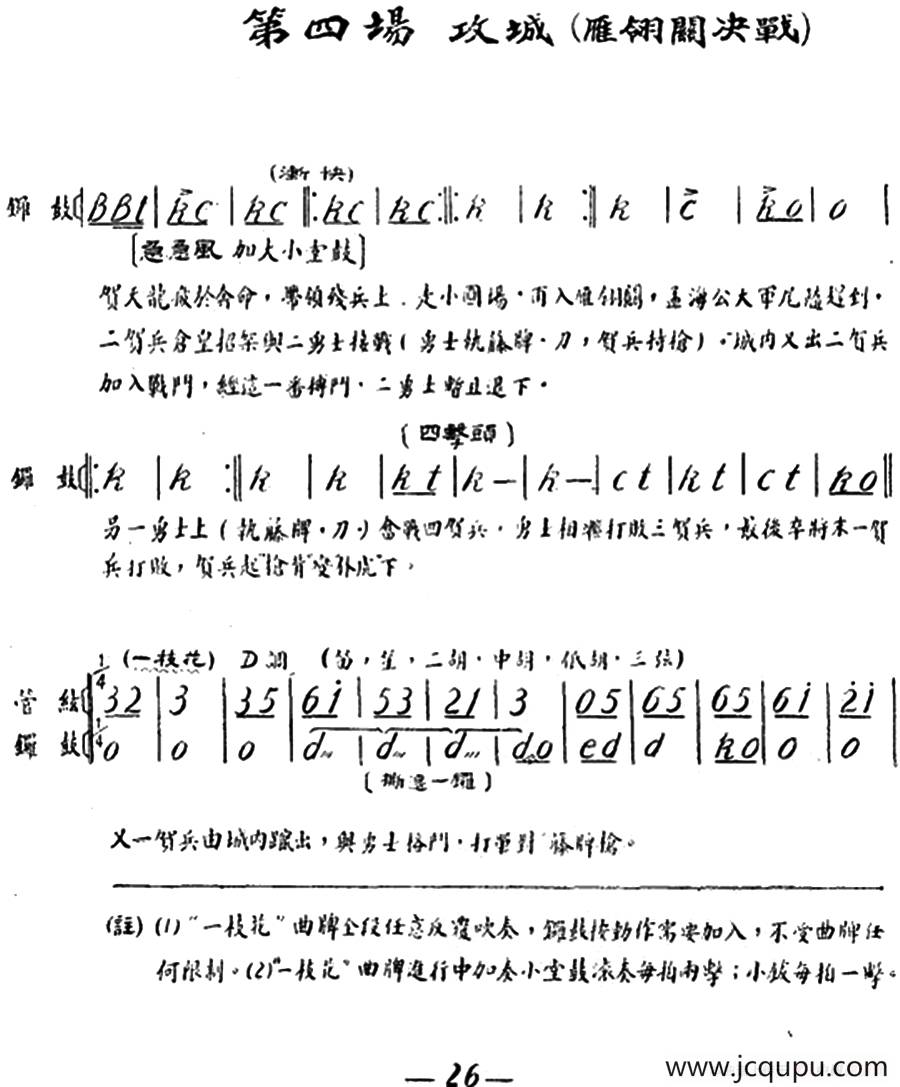 第四場 攻城(雁翎關决戰)
(漸快)
鑼鼓 BBl | kc | kc ‖: kc | kc :‖: k | k :‖ k | c | ko | o |
[急急風 加大小堂鼓]
賀天龍疲於奔命，帶領殘兵上．走小圓場·而入雁翎關，孟海公大軍尾隨趕到·
二賀兵倉皇招架與二勇士接戰(勇士執藤牌·刀，賀兵持槍)．城内又出二賀兵
加入戰鬥，經這一番搏鬥·二勇士暫且退下·
(四擊頭)
鑼鼓 ‖: k | k :‖ k | k | kt | k— | k— | ct | kt | ct | ko ‖
另一勇士上(執藤牌·刀)會戰四賀兵·勇士相繼打敗三賀兵，最後卒將末一賀
兵打敗，賀兵起"搶背"變卧虎下．
1/4 (一枝花) D調 (笛，笙，二胡·中胡，低胡·三弦)
管絃 32 | 3 | 35 | 6i | 53 | 21 | 3 | 05 | 65 | 65 | 6i | 2i |
鑼鼓 1/4 o | o | o | d | d | d | do | ed | d | ko | o | o |
(撕邊一鑼)
又一賀兵由城内躥出，與勇士格鬥·打單對"藤牌槍。
(註) (1)"一枝花"曲牌全段任意反覆吹奏，鑼鼓按動作需要加入，不受曲牌任
何限制。(2)"一枝花"曲牌進行中加奏小堂鼓滾奏每拍兩擊；小鈸每拍一擊。
—26—
www.jcqupu.com